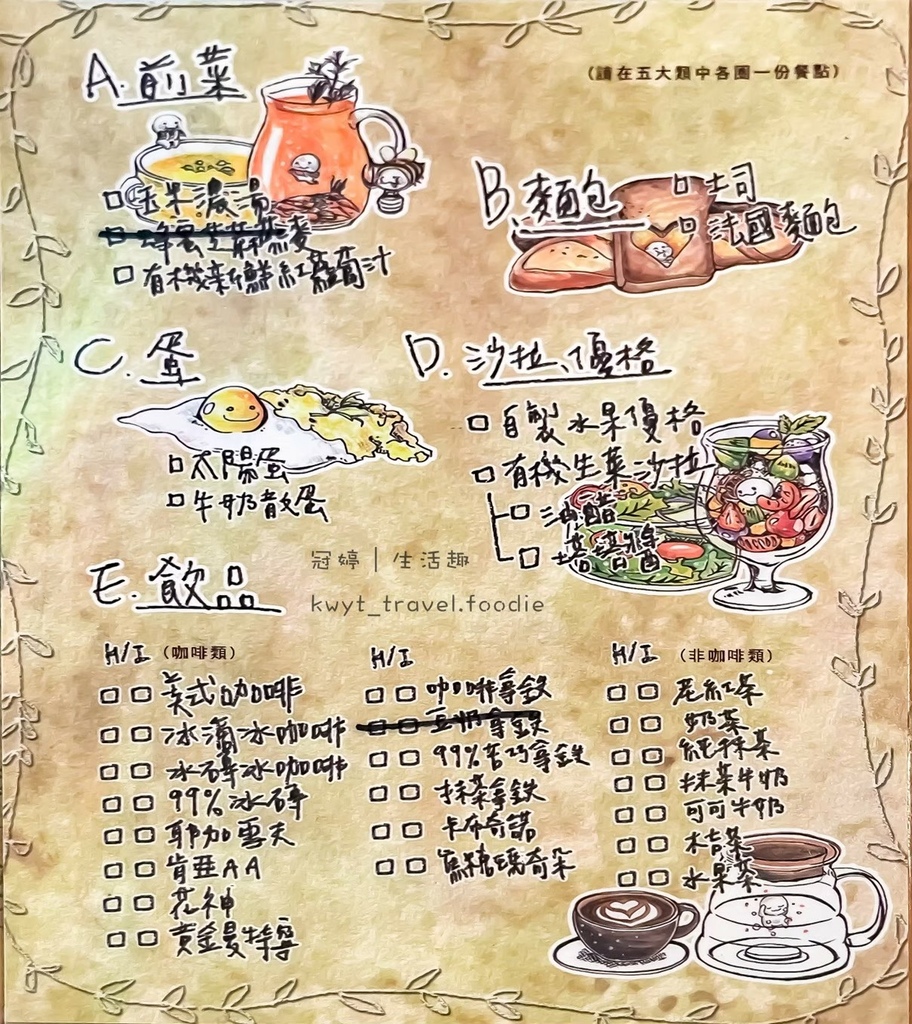 A. 前菜
(請在五大類中各圈一份餐點)
□玉米濃湯
□有機新鮮紅蘿蔔汁
B. 麵包
□土司
□法國麵包
C. 蛋
□太陽蛋
□牛奶散蛋
D. 沙拉、優格
□自製水果優格
□有機生菜沙拉
□油醋
□塔塔醬
冠婷|生活趣
kwyt_travel.foodie
E. 飲品
H/I (咖啡類)
□□美式咖啡
□□冰滴冰咖啡
□□冰磚冰咖啡
□□99%冰磚
□□耶加雪夫
□□肯亞AA
□□花神
□□黃金曼特寧
H/I
□□咖啡拿鐵
□□豆奶拿鐵
□□99%苦巧拿鐵
□□抹茶拿鐵
□□卡布奇諾
□□焦糖瑪奇朵
H/I (非咖啡類)
□□尾紅茶
□□奶茶
□□純抹茶
□□抹茶牛奶
□□可可牛奶
□□桔茶
□□水果茶